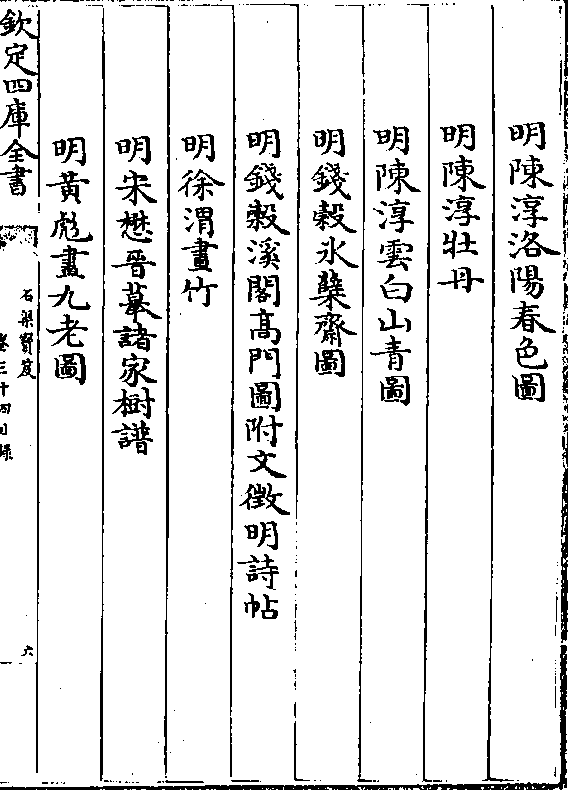 明陳淳洛陽春色圖
明陳淳牡丹
明陳淳雲白山青圖
明錢榖氷蘗齋圖
明錢榖溪閣高門圖附文徵明詩帖
明徐渭畫竹
明宋懋晉摹諸家樹譜
明黃彪畫九老圖
欽定四庫全書
石渠寳笈
卷三十四目録
六